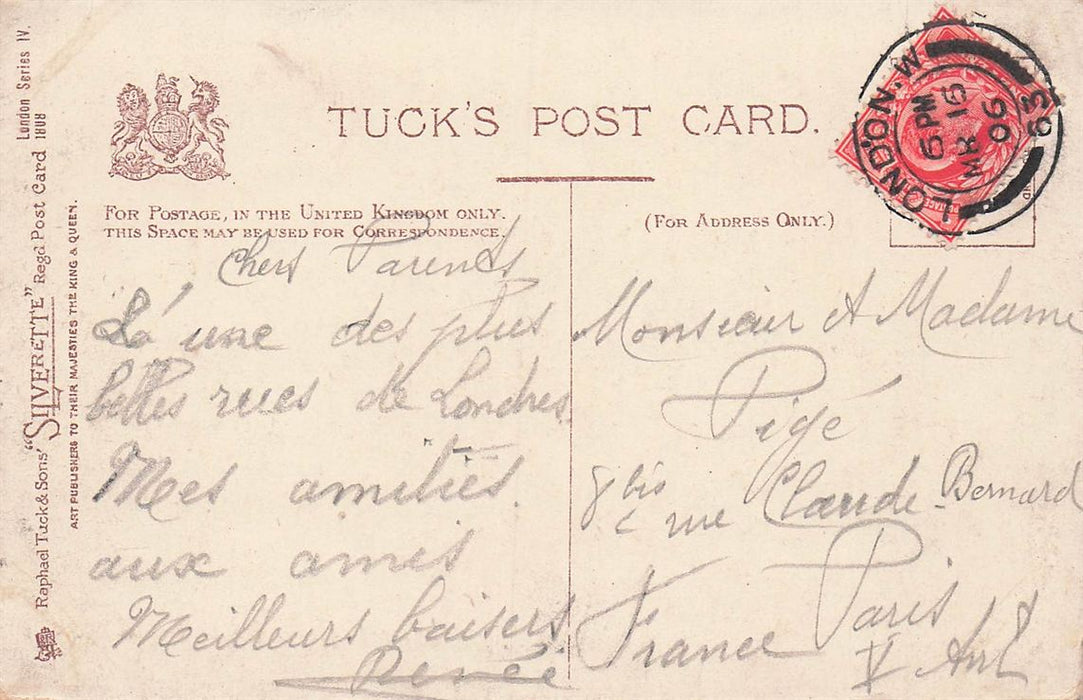 TUCK'S POST CARD.
FOR POSTAGE, IN THE UNITED KINGDOM ONLY.
THIS SPACE MAY BE USED FOR CORRESPONDENCE.
(FOR ADDRESS ONLY.)
LONDON. W
6 PM
MR 16
06
63
Chers Parents
Là une des plus
belles rues de Londres
Mes amitiés
aux amis
Meilleurs baisers
Renée
Monsieur et Madame
Pigé
8 bis rue Claude-Bernard
Paris
France V Arrt
Raphael Tuck & Sons' "SILVERETTE" Regd Post Card 1808
London Series IV.
ART PUBLISHERS TO THEIR MAJESTIES THE KING & QUEEN.